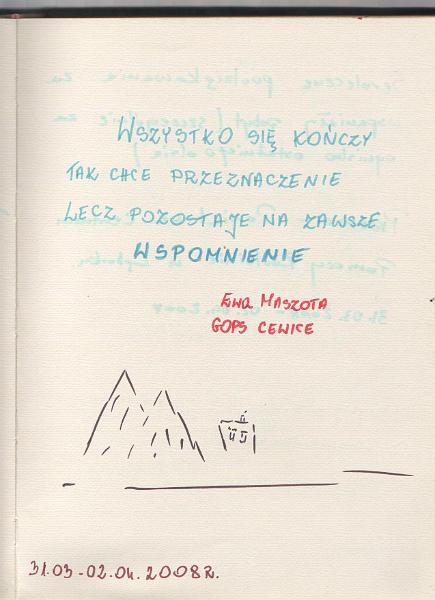 WSZYSTKO SIĘ KOŃCZY
TAK CHCE PRZEZNACZENIE
LECZ POZOSTAJE NA ZAWSZE
WSPOMNIENIE
EWA MASZOTA
GOPS CEWICE
31.03-02.04.2008r.